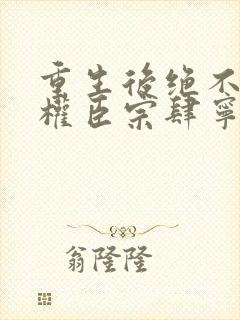 重生後绝不
權臣宗肆寧
翁隆隆